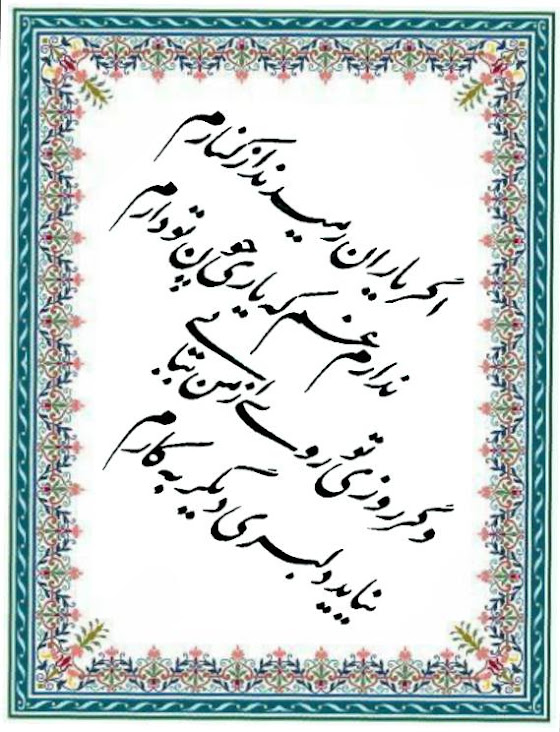 اگر یاران رمیدند از کنارم
ندارم غم که یاری چون تو دارم
وگر روزی تو روی از من بتابی
نیاید دلبری دیگر به کارم